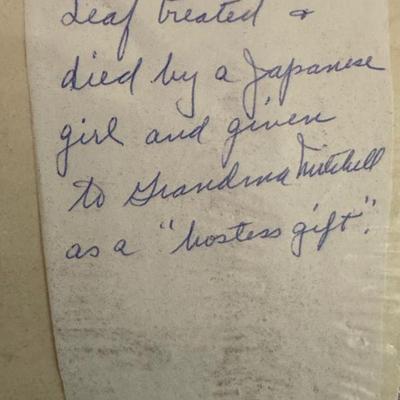 Leaf treated &
died by a Japanese
girl and given
to Grandma Mitchell
as a "hostess gift".